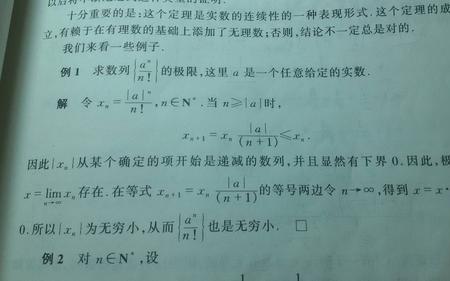 十分重要的是:这个定理是实数的连续性的一种表现形式.这个定理的成
立,有赖于在有理数的基础上添加了无理数;否则,结论不一定总是对的.
我们来看一些例子.
例 1 求数列{a^n/n!}的极限,这里 a 是一个任意给定的实数.
解 令 x_n = |a|^n/n!, n∈N*.当 n≥|a|时,
x_{n+1} = x_n |a|/(n+1) ≤ x_n.
因此{x_n}从某个确定的项开始是递减的数列,并且显然有下界 0.因此,极
x = lim_{n→∞} x_n 存在.在等式 x_{n+1} = x_n |a|/(n+1) 的等号两边令 n→∞,得到 x = x·
0.所以{x_n}为无穷小,从而{a^n/n!}也是无穷小. □
例 2 对 n∈N*,设
1 1